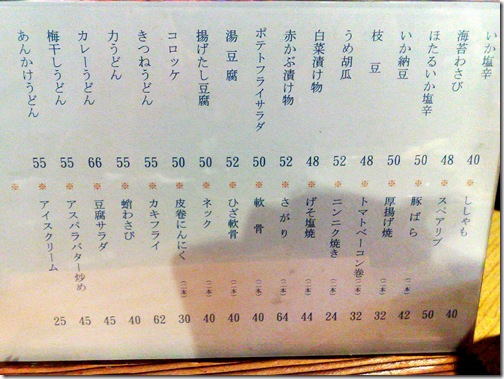 いか塩辛 40
海苔わさび 48
ほたるいか塩辛 50
いか納豆 50
枝 豆 48
うめ胡瓜 52
白菜漬け物 48
赤かぶ漬け物 52
ポテトフライサラダ 50
湯 豆 腐 52
揚げたし豆腐 50
コロッケ 50
きつねうどん 55
力うどん 55
カレーうどん 66
梅干しうどん 55
あんかけうどん 55
※ ※ ※ ※ ※ ※ ※ ※ ※ ※ ※ ※ ※ ※ ※ ※ ※
ししゃも 40
スペアリブ 50
豚ばら (二本) 42
厚揚げ焼 (二本) 32
トマトベーコン巻 (二本) 32
ニンニク焼き (二本) 24
げそ塩焼 (二本) 44
さがり (二本) 64
軟 骨 (二本) 40
ひざ軟骨 (二本) 40
ネック (二本) 40
皮巻にんにく (二本) 30
カキフライ 62
蛸わさび 40
豆腐サラダ 45
アスパラバター炒め 45
アイスクリーム 25